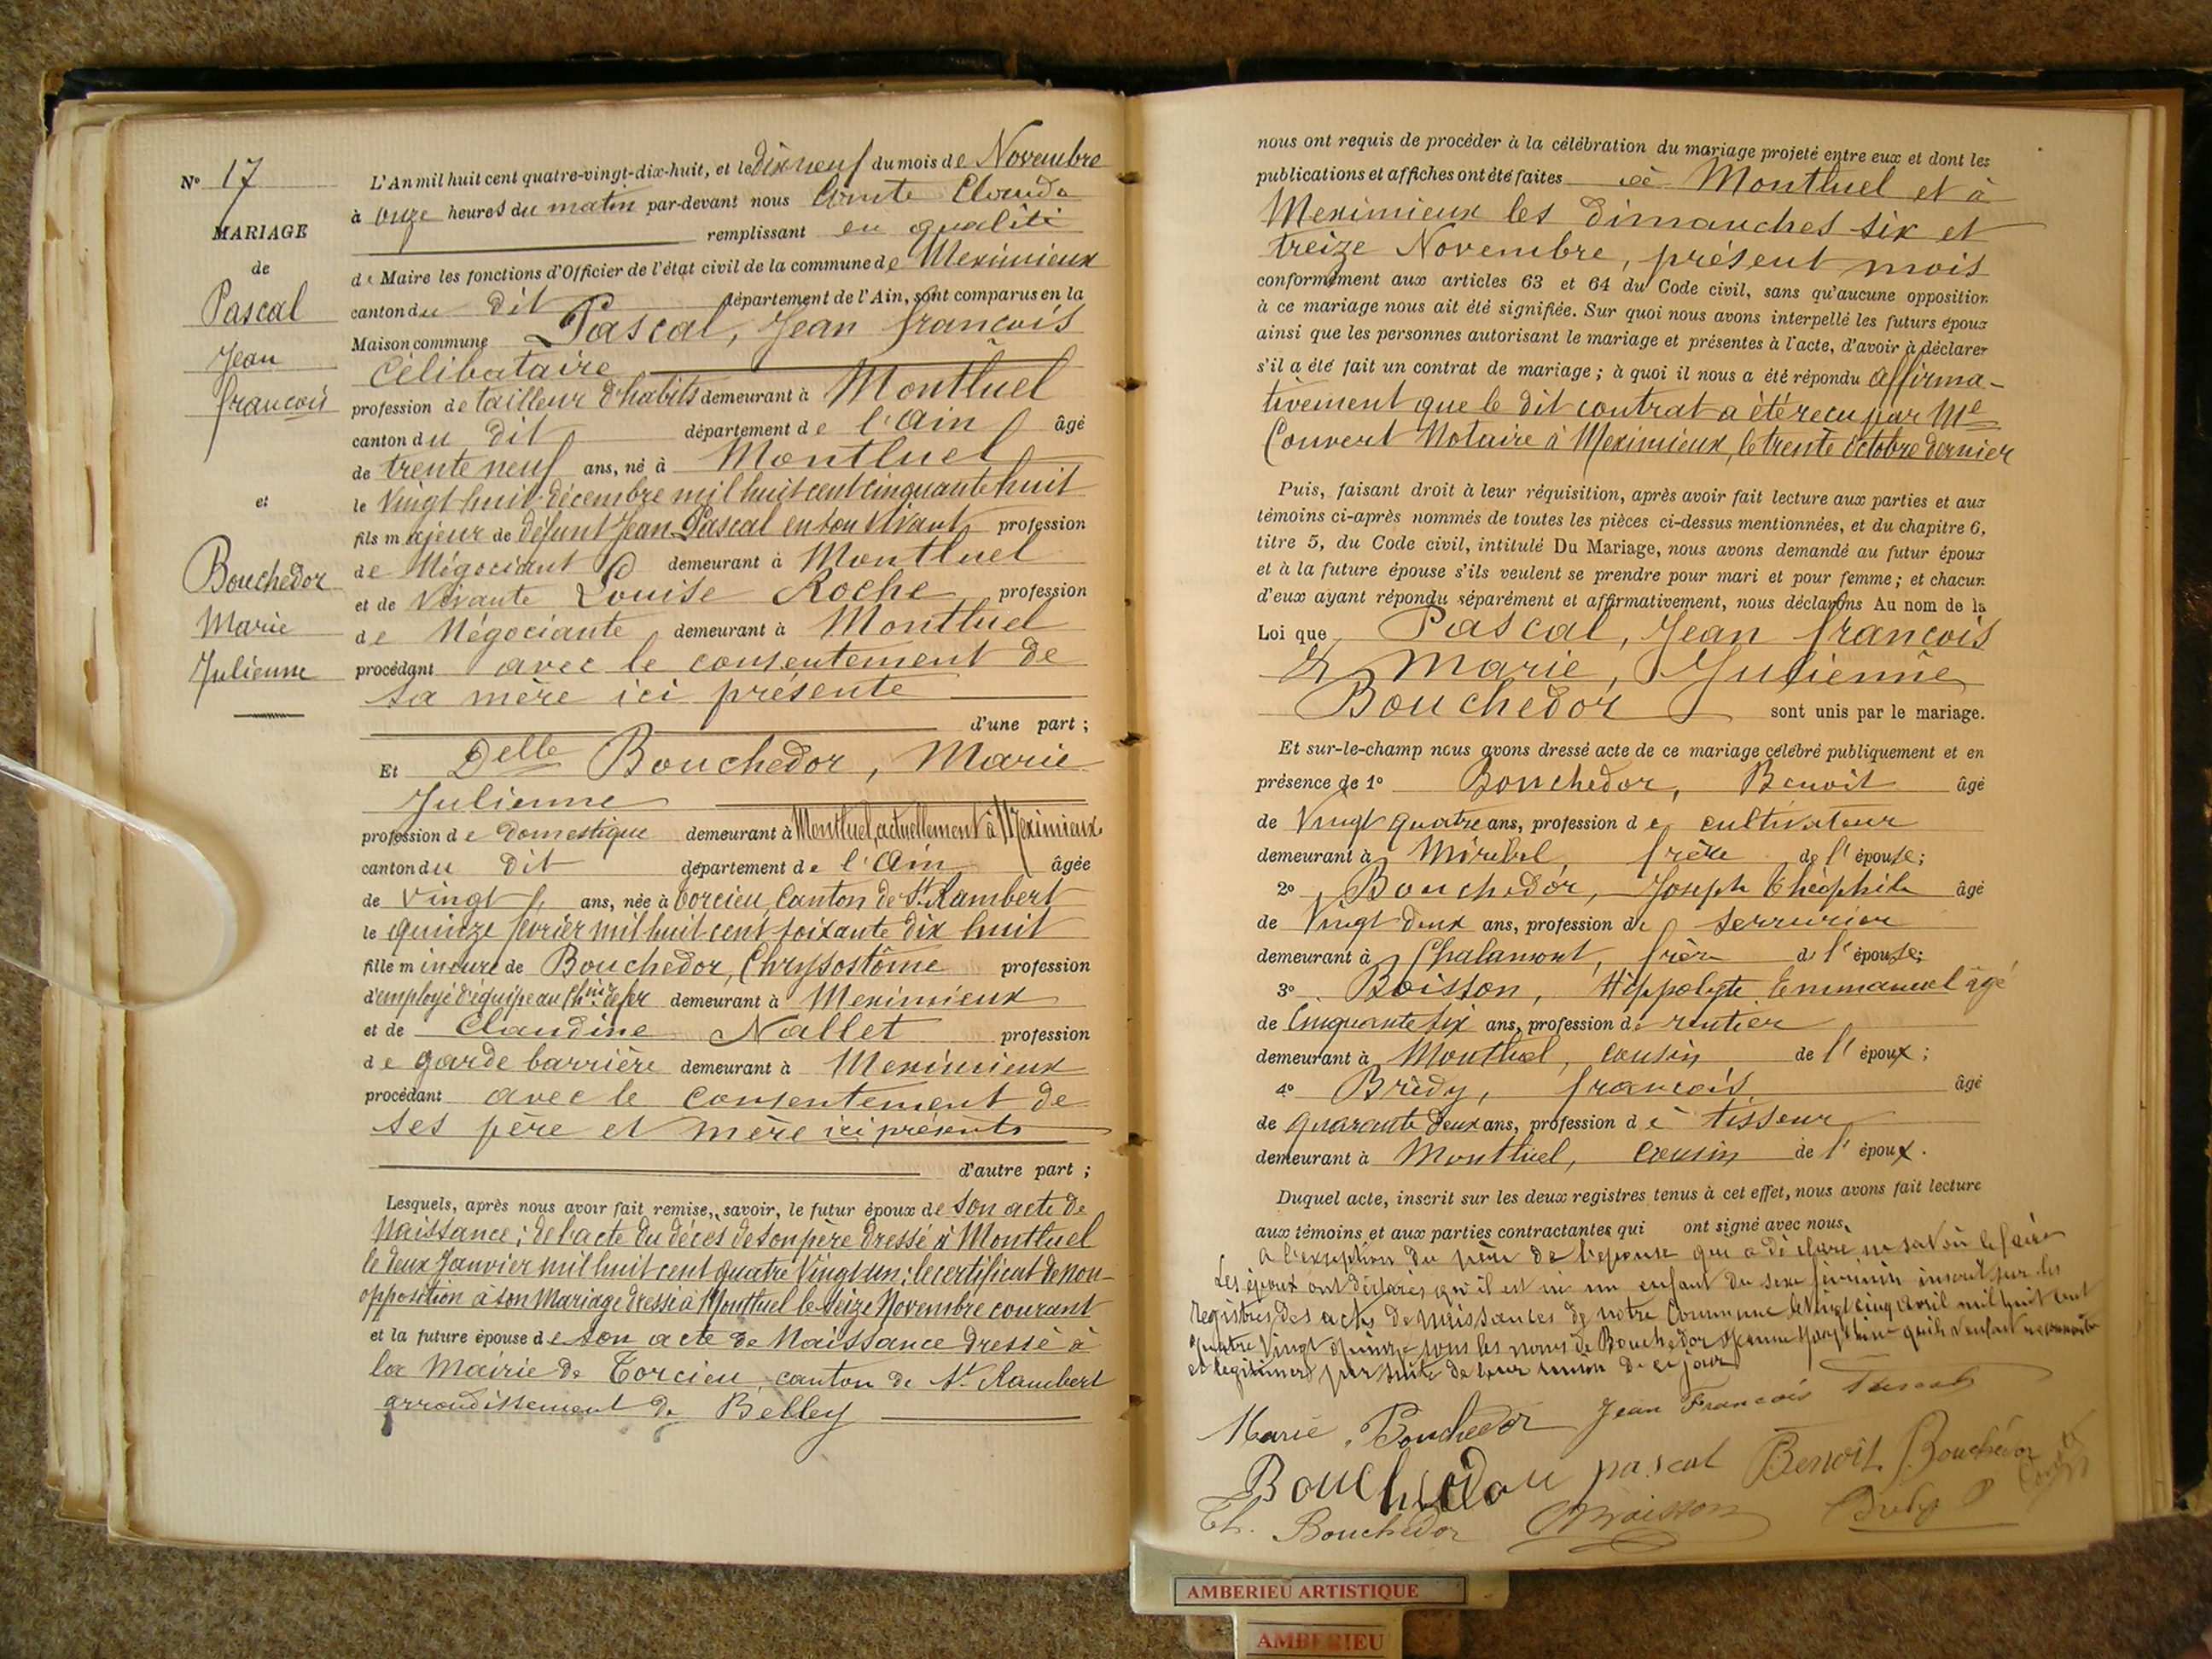 Nº 17
MARIAGE
de
Pascal
Jean
françois
et
Bouchedor
Marie
Julienne
L'An mil huit cent quatre-vingt-dix-huit, et le dix neuf du mois de Novembre
à onze heures du matin par-devant nous Comte Claude
remplissant en qualité
de Maire les fonctions d'Officier de l'état civil de la commune de Meximieux
canton du dit département de l'Ain, sont comparus en la
Maison commune Pascal, Jean françois
Célibataire
profession de tailleur d'habits demeurant à Montluel
canton du dit département de l'Ain âgé
de trente neuf ans, né à Montluel
le vingt huit décembre mil huit cent cinquante huit
fils majeur de défunt Jean Pascal en son vivant profession
de Négociant demeurant à Montluel
et de vivante Louise Roche profession
de Négociante demeurant à Montluel
procédant avec le consentement de
sa mère ici présente
d'une part ;
Et Delle Bouchedor, Marie
Julienne
profession de domestique demeurant à Montluel, actuellement à Meximieux
canton du dit département de l'Ain âgée
de vingt ans, née à Torcieu, Canton de St Rambert
le quinze février mil huit cent soixante dix huit
fille mineure de Bouchedor, Chrysostôme profession
d'employé d'équipe au Chin de fer demeurant à Meximieux
et de Claudine Nallet profession
de garde barrière demeurant à Meximieux
procédant avec le consentement de
ses père et mère ici présents
d'autre part ;
Lesquels, après nous avoir fait remise, savoir, le futur époux de son acte de
Naissance ; de l'acte du décès de son père dressé à Montluel
le deux Janvier mil huit cent quatre vingt un ; le certificat de non-
opposition à son Mariage dressé à Montluel le seize Novembre courant
et la future épouse de son acte de Naissance dressé à
la Mairie de Torcieu, canton de St Rambert
arrondissement de Belley
nous ont requis de procéder à la célébration du mariage projeté entre eux et dont les
publications et affiches ont été faites à Montluel et à
Meximieux les dimanches six et
treize Novembre, présent mois
conformément aux articles 63 et 64 du Code civil, sans qu'aucune opposition
à ce mariage nous ait été signifiée. Sur quoi nous avons interpellé les futurs époux
ainsi que les personnes autorisant le mariage et présentes à l'acte, d'avoir à déclarer
s'il a été fait un contrat de mariage ; à quoi il nous a été répondu affirma-
tivement que le dit contrat a été recu par Me
Convert Notaire à Meximieux, le trente octobre dernier
Puis, faisant droit à leur réquisition, après avoir fait lecture aux parties et aux
témoins ci-après nommés de toutes les pièces ci-dessus mentionnées, et du chapitre 6,
titre 5, du Code civil, intitulé Du Mariage, nous avons demandé au futur époux
et à la future épouse s'ils veulent se prendre pour mari et pour femme ; et chacun
d'eux ayant répondu séparément et affirmativement, nous déclarons Au nom de la
Loi que Pascal, Jean françois
& Marie, Julienne
Bouchedor sont unis par le mariage.
Et sur-le-champ nous avons dressé acte de ce mariage célébré publiquement et en
présence de 1º Bouchedor, Benoît âgé
de Vingt quatre ans, profession de cultivateur
demeurant à Miribel, frère de l'épouse ;
2º Bouchedor, Joseph Théophile âgé
de Vingt deux ans, profession de serrurier
demeurant à Chalamont, frère de l'épouse ;
3º Boisson, Hippolyte Emmanuel âgé
de Cinquante six ans, profession de rentier
demeurant à Montluel, cousin de l'époux ;
4º Brédy, françois âgé
de quarante deux ans, profession de tisseur
demeurant à Montluel, cousin de l'époux.
Duquel acte, inscrit sur les deux registres tenus à cet effet, nous avons fait lecture
aux témoins et aux parties contractantes qui ont signé avec nous,
à l'exception du père de l'épouse qui a déclaré ne savoir le faire
Les époux ont déclarés qu'il est né un enfant du sexe féminin inscrit sur les
registres des actes de naissances de notre Commune le Vingt cinq avril mil huit cent
quatre Vingt quinze sous les noms de Bouchedor Jeanne qu'ils veulent reconnaitre
et légitimer par suite de leur union de ce jour
Marie Bouchedor Jean François Pascal
Bouchedou pascal Benoît Bouchédor
Th. Bouchedor Boisson Bredy
AMBERIEU ARTISTIQUE
AMBERIEU